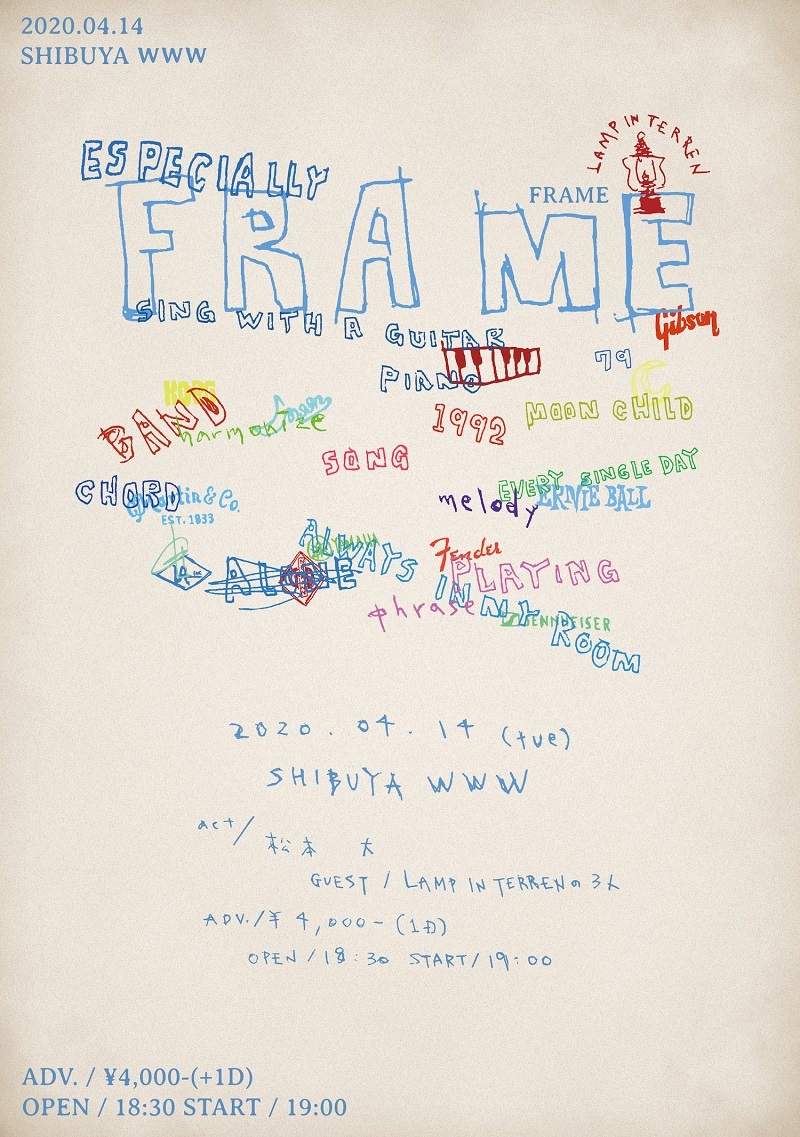 2020.04.14
SHIBUYA WWW
LAMP IN TERREN
ESPECIALLY
FRAME
FRAME
SING WITH A GUITAR
Gibson
PIANO
79
KORG
BAND
harmonize
1992
MOON CHILD
SONG
EVERY SINGLE DAY
CHORD
Martin & Co.
EST. 1833
melody
ERNIE BALL
ALWAYS
YAMAHA
Fender
ALONE
PLAYING
phrase
IN MY ROOM
SENNHEISER
2020.04.14 (tue)
SHIBUYA WWW
act/
松本 大
GUEST / LAMP IN TERRENの3人
ADV./¥4,000-(1D)
OPEN/18:30 START/19:00
ADV. / ¥4,000-(+1D)
OPEN / 18:30 START / 19:00